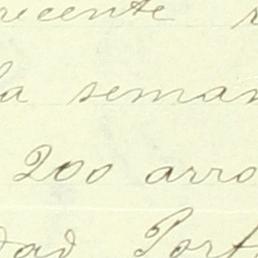 recente
la seman
200 arro
dad Port